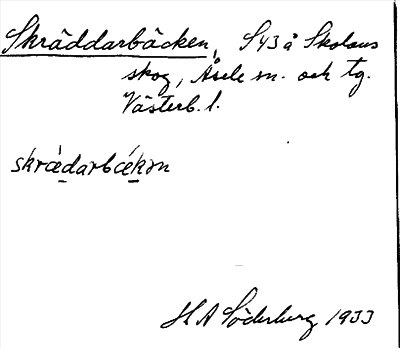 Skräddarbäcken, S43 å Skolans
skog, Åsele sn. och tg.
Västerb. l.
skrædarbækən
H A Söderberg 1933